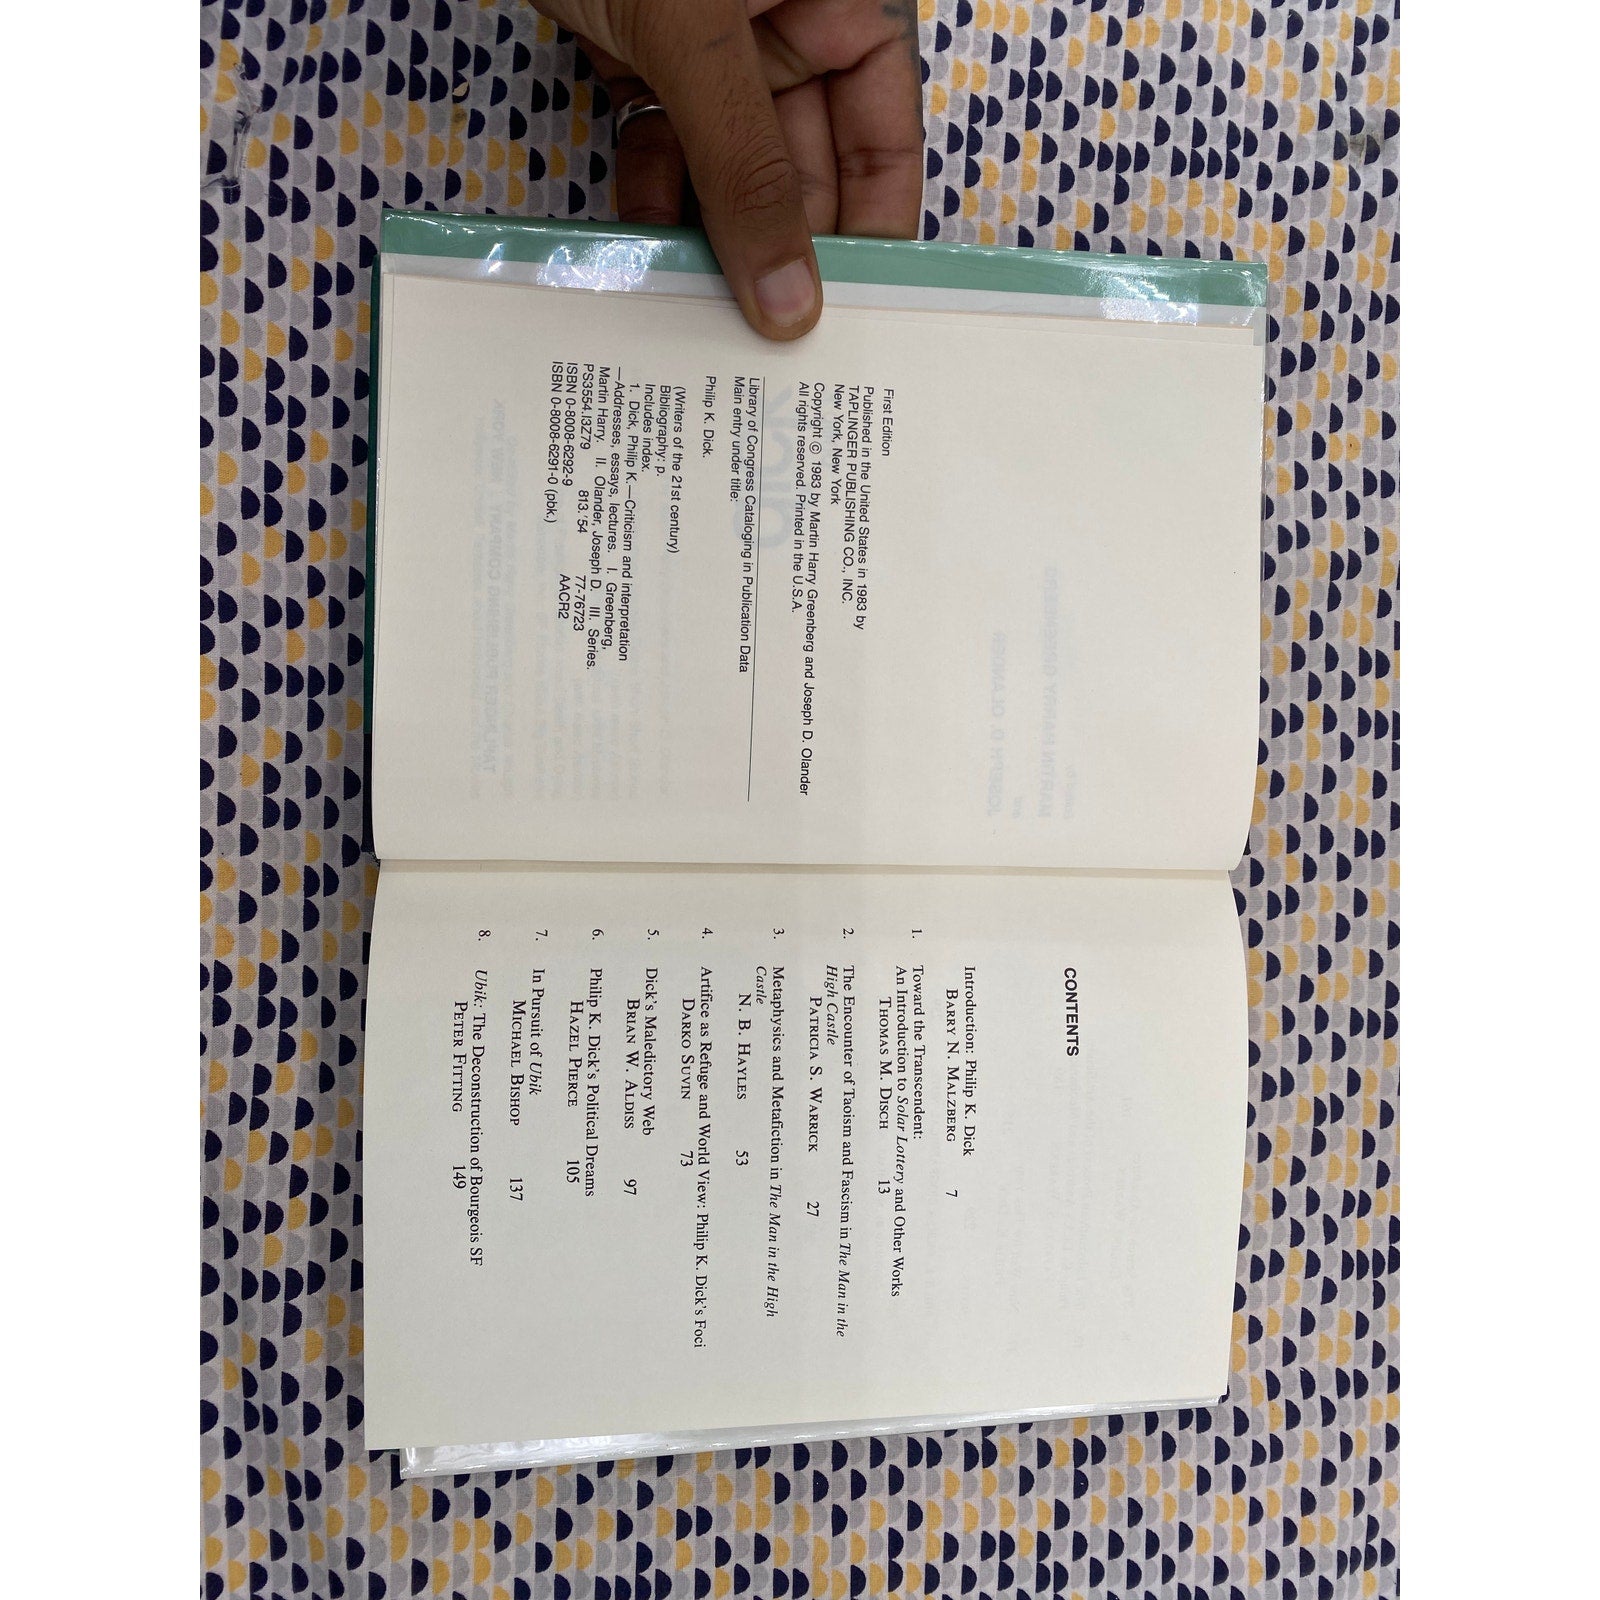 First Edition
Published in the United States in 1983 by
TAPLINGER PUBLISHING CO., INC.
New York, New York
Copyright © 1983 by Martin Harry Greenberg and Joseph D. Olander
All rights reserved. Printed in the U.S.A.
Library of Congress Cataloging in Publication Data
Main entry under title:
Philip K. Dick.
(Writers of the 21st century)
Bibliography: p.
Includes index.
1. Dick, Philip K.—Criticism and interpretation
—Addresses, essays, lectures. I. Greenberg,
Martin Harry. II. Olander, Joseph D. III. Series.
PS3554.I3Z79 813.'54 77-76723
ISBN 0-8008-6292-9 AACR2
ISBN 0-8008-6291-0 (pbk.)
CONTENTS
Introduction: Philip K. Dick
BARRY N. MALZBERG 7
1. Toward the Transcendent:
An Introduction to Solar Lottery and Other Works
THOMAS M. DISCH 13
2. The Encounter of Taoism and Fascism in The Man in the
High Castle
PATRICIA S. WARRICK 27
3. Metaphysics and Metafiction in The Man in the High
Castle
N. B. HAYLES 53
4. Artifice as Refuge and World View: Philip K. Dick's Foci
DARKO SUVIN 73
5. Dick's Maledictory Web
BRIAN W. ALDISS 97
6. Philip K. Dick's Political Dreams
HAZEL PIERCE 105
7. In Pursuit of Ubik
MICHAEL BISHOP 137
8. Ubik: The Deconstruction of Bourgeois SF
PETER FITTING 149